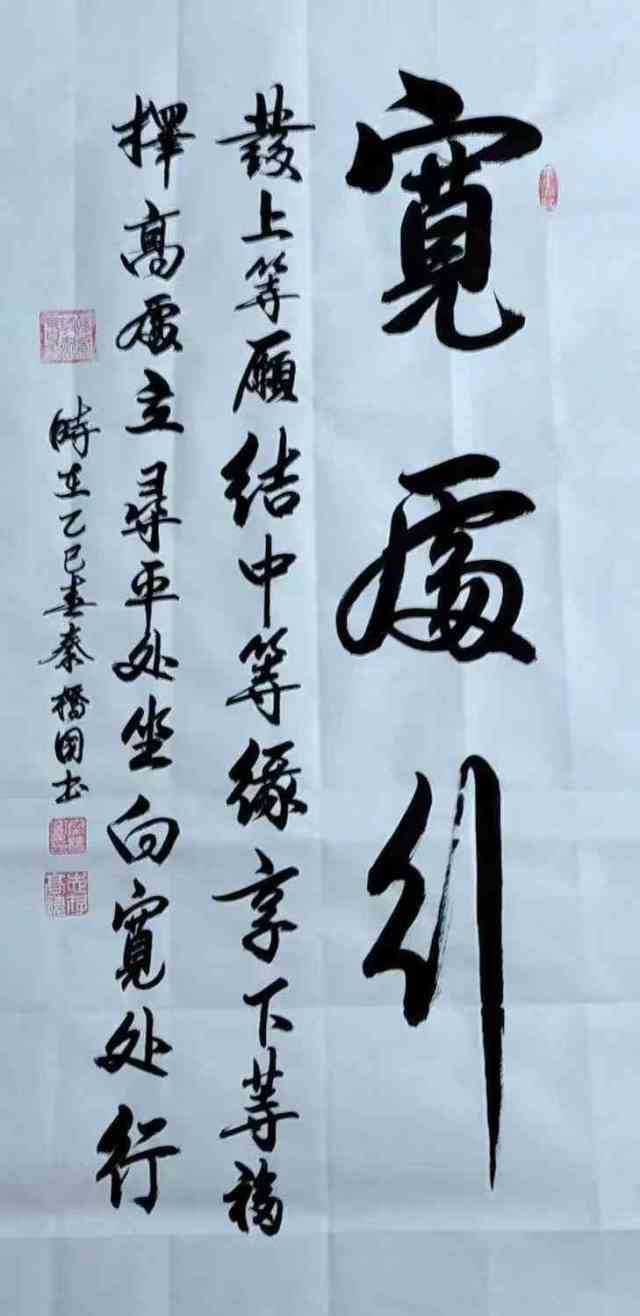 寬處行
發上等願結中等緣享下等福
擇高處立尋平处坐向寬处行
時在乙巳春秦橋国书